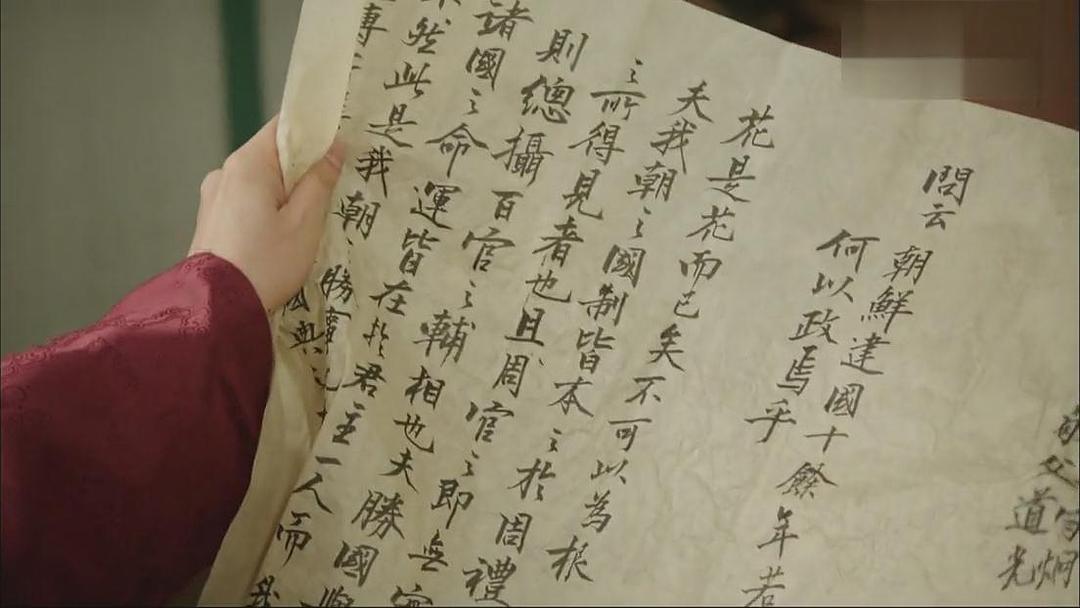 問云
朝鮮建國十餘年若
何以政焉乎
花是花而已矣不可以為根
夫我朝之國制皆本之於周禮
之所得見者也且周官之即無官
則總攝百官之輔相也夫勝國
諸國之命運皆在於君主一人而我
然此是我朝之勝
國與
父道光
炯